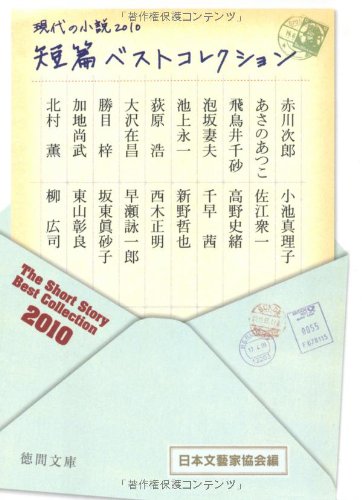 「著作権保護コンテンツ」
現代の小説2010
短篇ベストコレクション
赤川次郎
あさのあつこ
飛鳥井千砂
泡坂妻夫
池上永一
荻原 浩
大沢在昌
勝目 梓
加地尚武
北村 薫
小池真理子
佐江衆一
高野史緒
千早 茜
新野哲也
西木正明
早瀬詠一郎
坂東眞砂子
東山彰良
柳 広司
The Short Story
Best Collection
2010
0055
徳間文庫
日本文藝家協会編
「著作権保護コンテンツ」